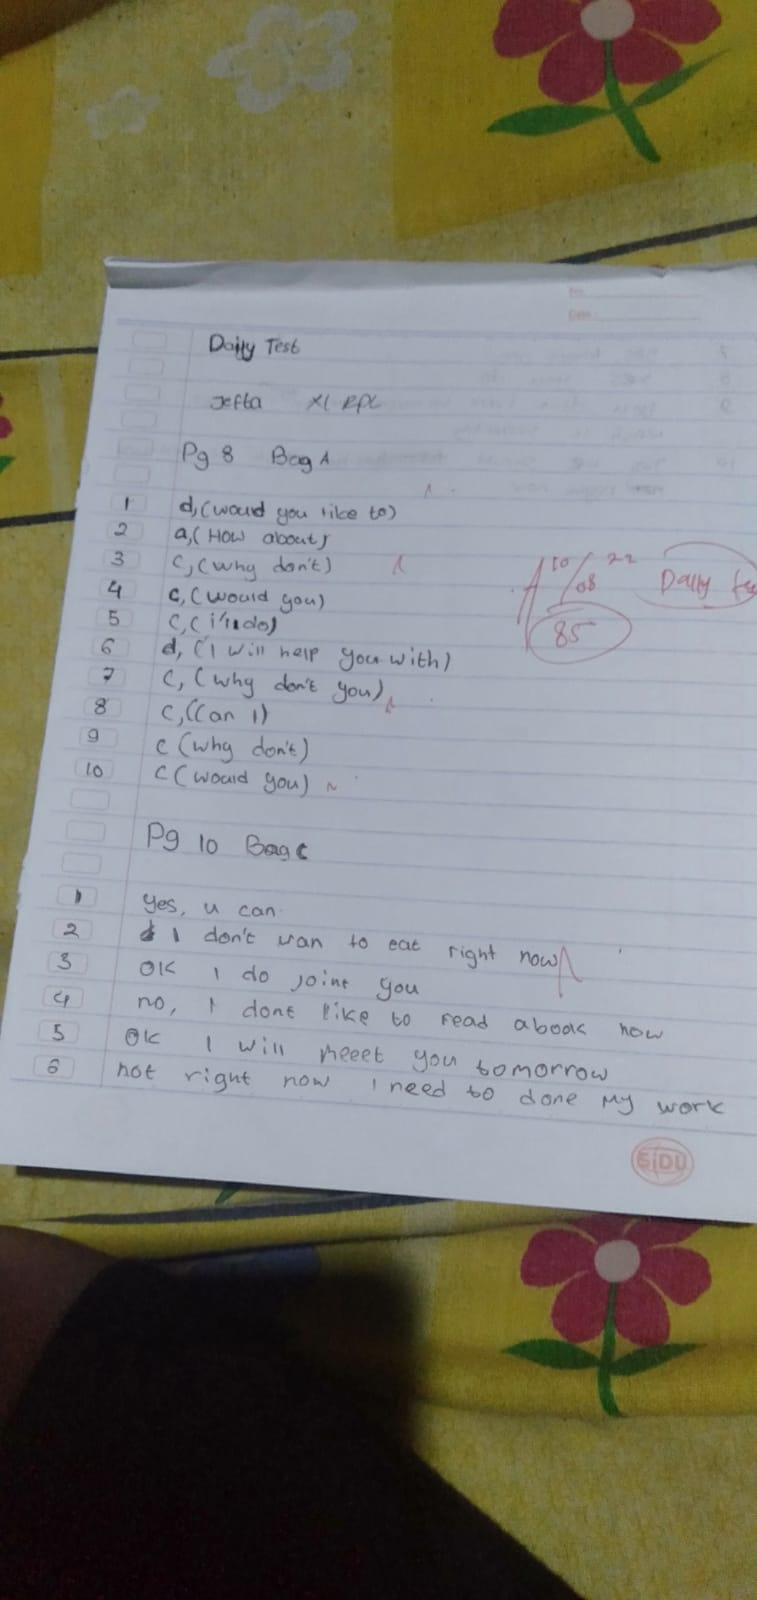 Daily Test
Jefta XI RPL
Pg 8 Bag A
1 d, (would you like to)
2 a, (How about)
3 C, (why don't)
4 c, (would you)
5 C, (i'll do)
6 d, (I will help you with)
7 C, (why don't you)
8 C, (Can I)
9 c (why don't)
10 c (would you)
10/08 22
Daily
85
Pg 10 Bag C
1 yes, u can
2 I don't wan to eat right now
3 OK I do joint you
4 no, I dont like to read a book now
5 OK I will meeet you tomorrow
6 not right now I need to done My work
SIDU